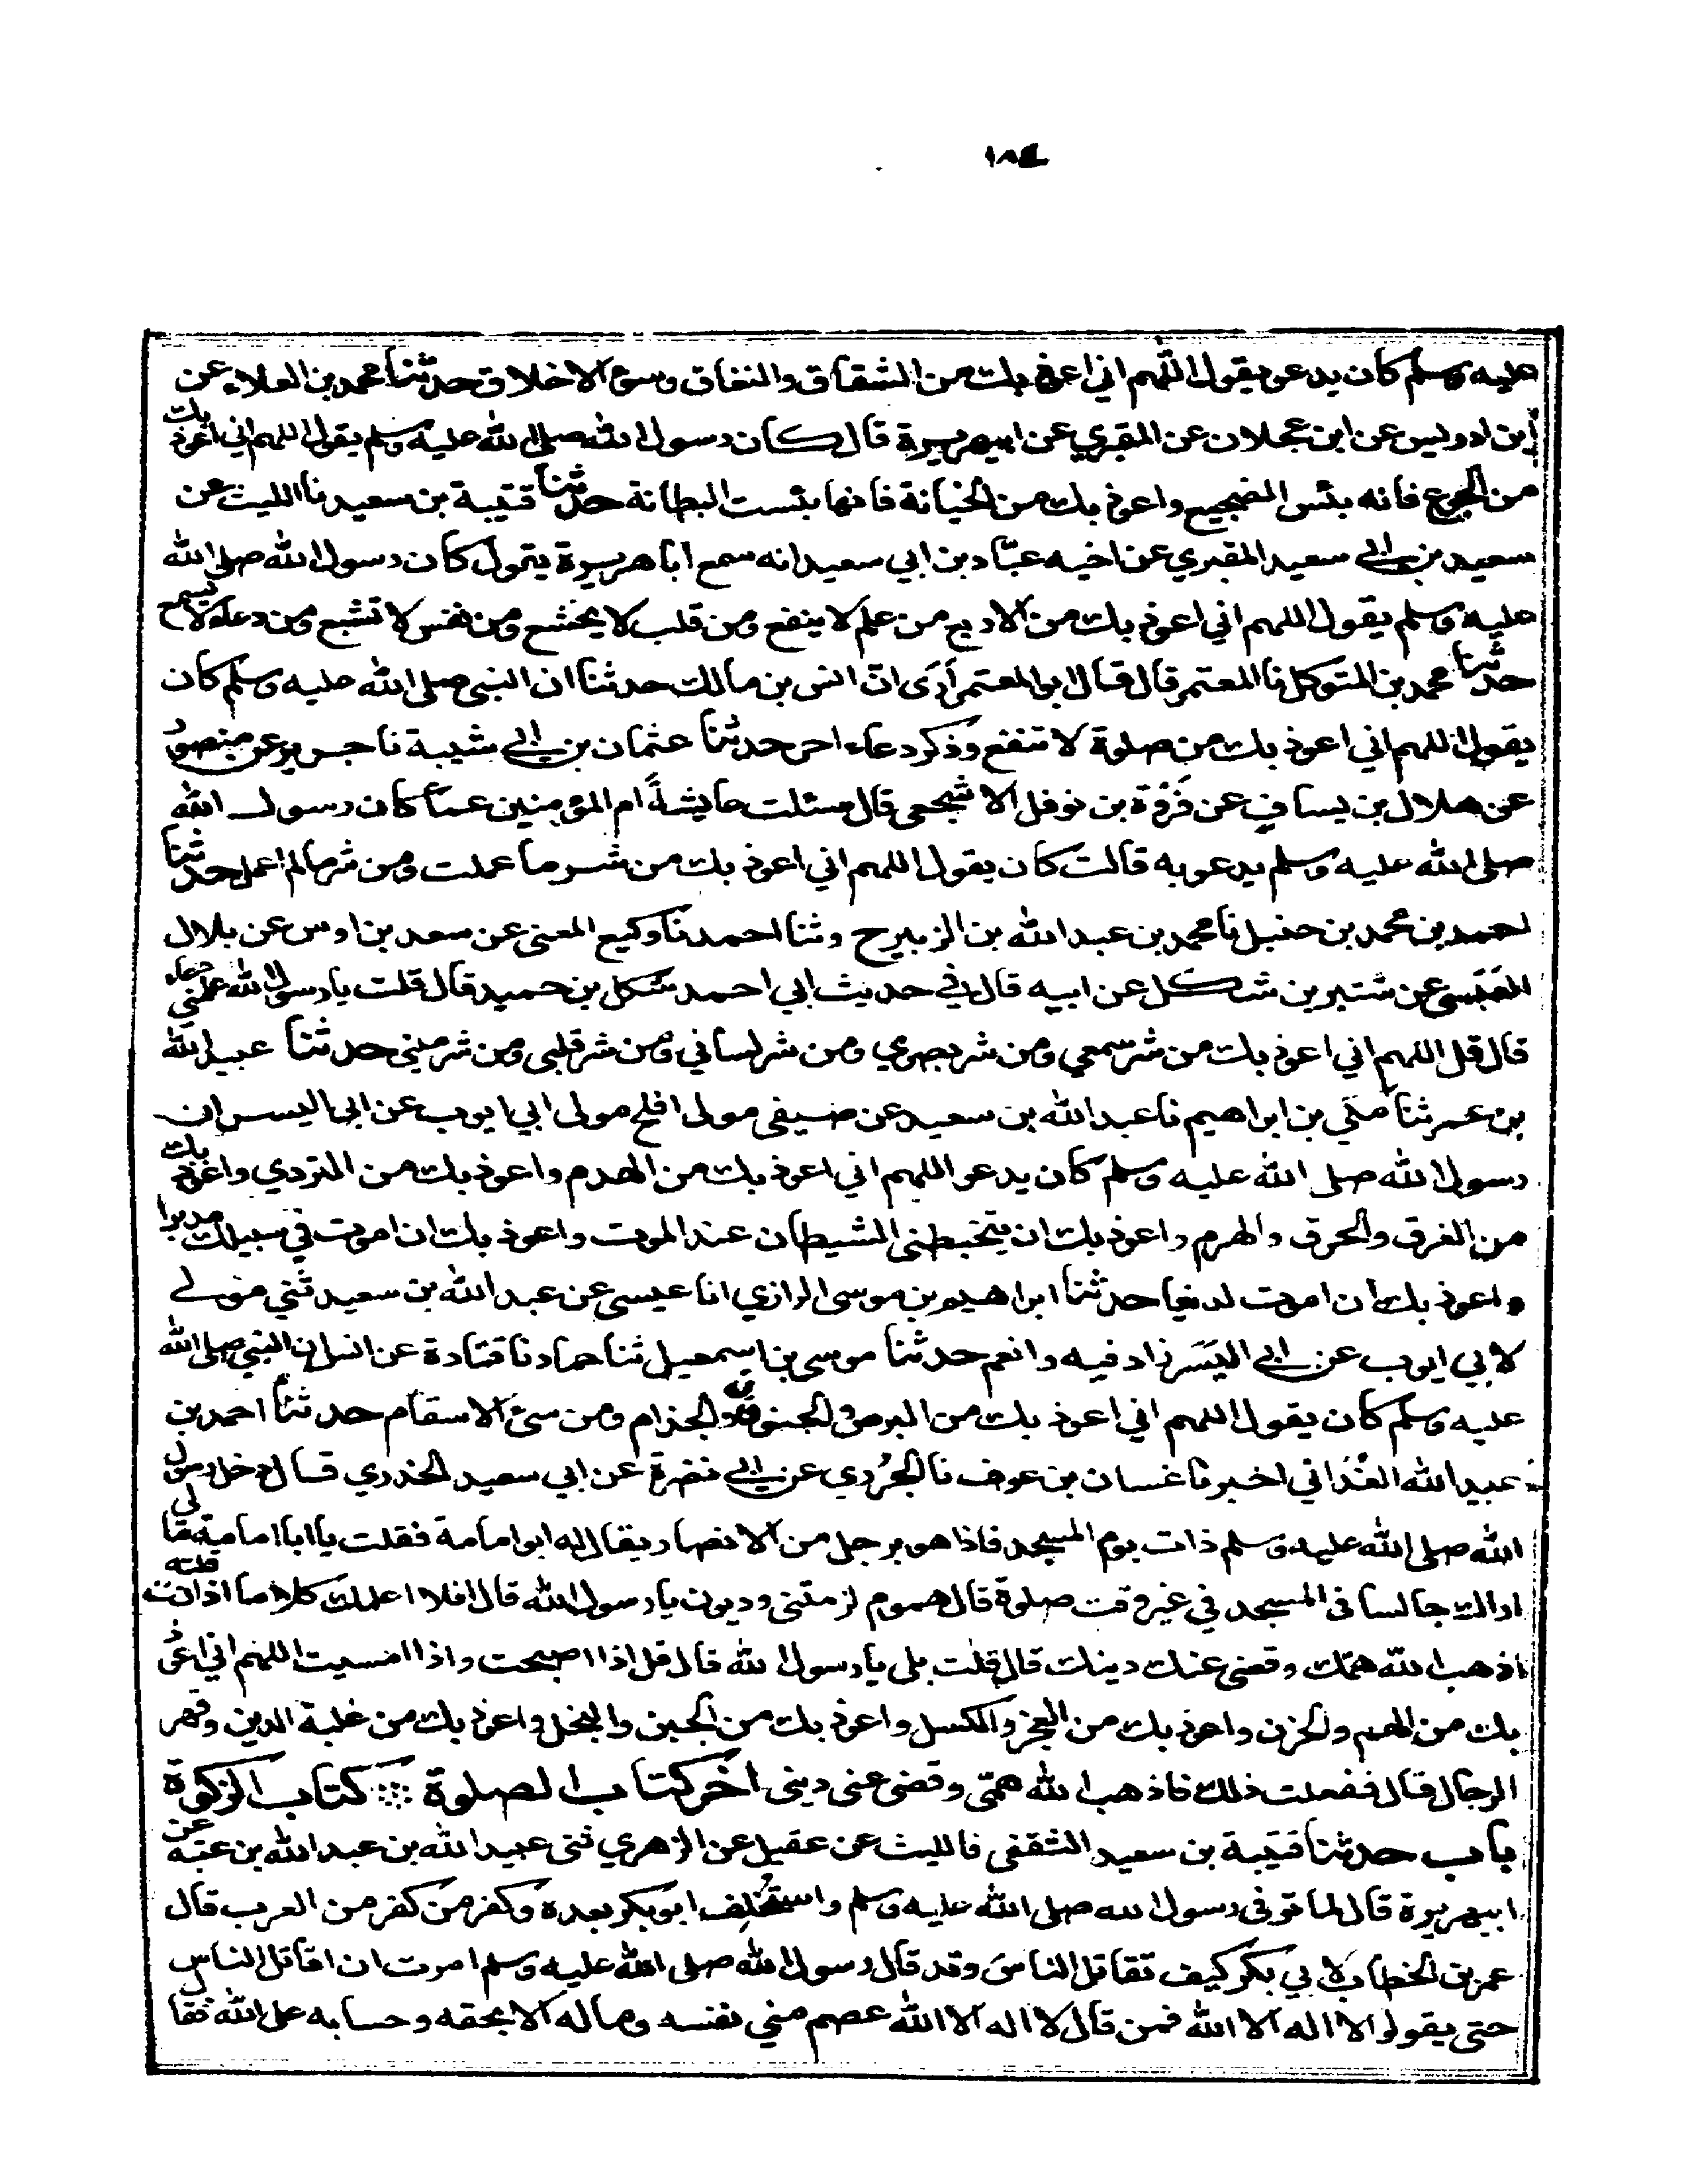 ١٨٤
عليه وسلم كان يدعو يقول اللهم اني اعوذ بك من الشقاق والنفاق وسوء الاخلاق حدثنا محمد بن العلاء عن
ابن ادريس عن ابن عجلان عن المقبري عن ابيهريرة قال كان رسول الله صلى الله عليه وسلم يقول اللهم اني اعوذ بك
من الجوع فانه بئس الضجيع واعوذ بك من الخيانة فانها بئست البطانة حدثنا قتيبة بن سعيد نا الليث عن
سعيد بن ابي سعيد المقبري عن اخيه عبّاد بن ابي سعيد انه سمع ابا هريرة يقول كان رسول الله صلى الله
عليه وسلم يقول اللهم اني اعوذ بك من الاربع من علم لا ينفع ومن قلب لا يخشع ومن نفس لا تشبع ومن دعاء لا يسمع
حدثنا محمد بن المتوكل نا المعتمر قال قال ابو المعتمر اُرَى انّ انس بن مالك حدثنا ان النبي صلى الله عليه وسلم كان
يقول اللهم اني اعوذ بك من صلوة لا تنفع وذكر دعاء اخر حدثنا عثمان بن ابي شيبة نا جرير عن منصور
عن هلال بن يساف عن فَرْوَة بن نوفل الاشجعي قال سئلت عايشة ام المؤمنين عمّا كان رسول الله
صلى الله عليه وسلم يدعو به قالت كان يقول اللهم اني اعوذ بك من شر ما عملت ومن شر ما لم اعمل حدثنا
احمد بن محمد بن حنبل نا محمد بن عبد الله بن الزبير ح وثنا احمد نا وكيع المعنى عن سعد بن اوس عن بلال
العَبْسى عن شتير بن شكل عن ابيه قال في حديث ابي احمد شكل بن حميد قال قلت يا رسول الله علمني دعاء
قال قل اللهم اني اعوذ بك من شر سمعي ومن شر بصري ومن شر لساني ومن شر قلبي ومن شر منيى حدثنا عبيد الله
بن عمر ثنا مكي بن ابراهيم نا عبد الله بن سعيد عن صيفى مولى افلح مولى ابي ايوب عن ابي اليسر ان
رسول الله صلى الله عليه وسلم كان يدعو اللهم اني اعوذ بك من الهدم واعوذ بك من التردي واعوذ بك
من الغرق والحرق والهرم واعوذ بك ان يتخبطنى الشيطان عند الموت واعوذ بك ان اموت في سبيلك مدبرا
واعوذ بك ان اموت لديغا حدثنا ابراهيم بن موسى الرازي انا عيسى عن عبد الله بن سعيد ثني مولى
لابي ايوب عن ابي اليَسَر زاد فيه والغم حدثنا موسى بن اسمعيل ثنا حماد نا قتادة عن انس ان النبي صلى الله
عليه وسلم كان يقول اللهم اني اعوذ بك من البرص والجنون والجذام ومن سئ الاسقام حدثنا احمد بن
عبيد الله الغُدَاني اخبرنا غسان بن عوف نا الجُرَيري عن ابي نضرة عن ابي سعيد الخدري قال دخل رسول
الله صلى الله عليه وسلم ذات يوم المسجد فاذا هو برجل من الانصار يقال له ابو امامة فقلت يا ابا امامة مالي
اراك جالسا فى المسجد في غير وقت صلوة قال هموم لزمتنى وديون يا رسول الله قال افلا اعلمك كلاما اذا انت قلته
اذهب الله همّك وقضى عنك دينك قال قلت بلى يا رسول الله قال قل اذا اصبحت واذا امسيت اللهم اني اعوذ
بك من الهم والحزن واعوذ بك من العجز والكسل واعوذ بك من الجبن والبخل واعوذ بك من غلبة الدين وقهر
الرجال قال ففعلت ذلك فاذهب الله همّى وقضى عنى دينى اخر كتاب الصلوة كتاب الزكوة
باب حدثنا قتيبة بن سعيد الثقفى نا الليث عن عقيل عن الزهري ثنى عبيد الله بن عبد الله بن عتبة عن
ابيهريرة قال لما توفى رسول الله صلى الله عليه وسلم واستُخْلِف ابو بكر بعده وكفر من كفر من العرب قال
عمر بن الخطاب لابي بكر كيف تقاتل الناس وقد قال رسول الله صلى الله عليه وسلم امرت ان اقاتل الناس
حتى يقولوا لا اله الا الله فمن قال لا اله الا الله عصم مني نفسه وماله الا بحقه وحسابه على الله فقال